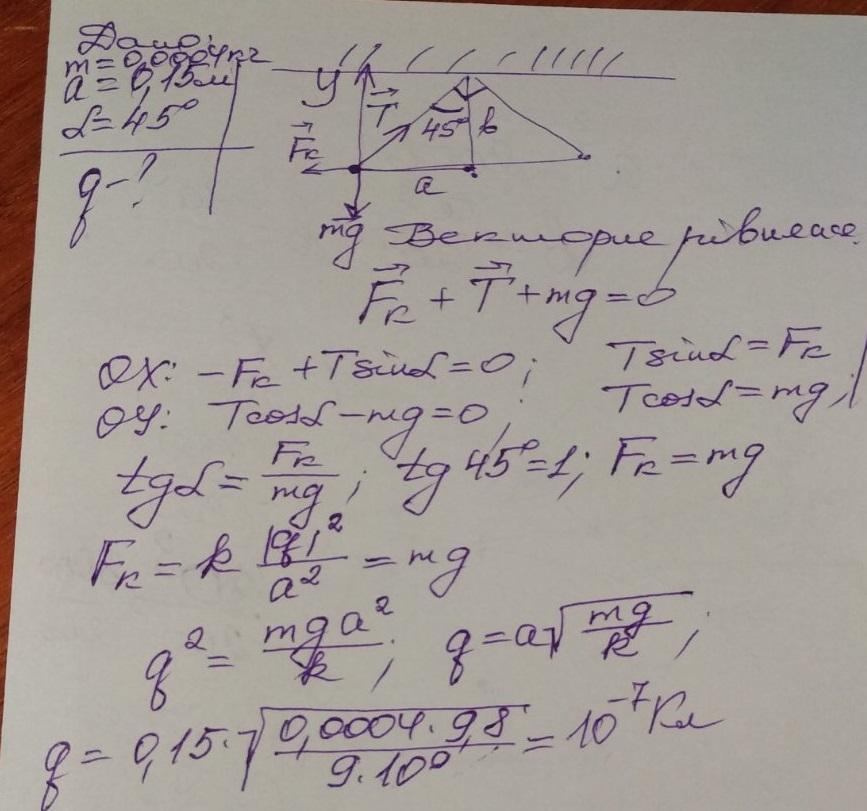 Дано:
m = 0,0004 кг
a = 0,15 м
α = 45°
q - ?
y
T
F
к
45°
b
a
mg
Векторне рівняння
F
к
 + T + mg = 0
OX: -F
к
 + T sinα = 0; T sinα = F
к
OY: T cosα - mg = 0; T cosα = mg;
tgα = F
к
/mg; tg 45° = 1; F
к
 = mg
F
к
 = k |q|²/a² = mg
q² = mga²/k; q = a√(mg/k);
q = 0,15·√(0,0004·9,8/9·10⁹) = 10⁻⁷ Кл